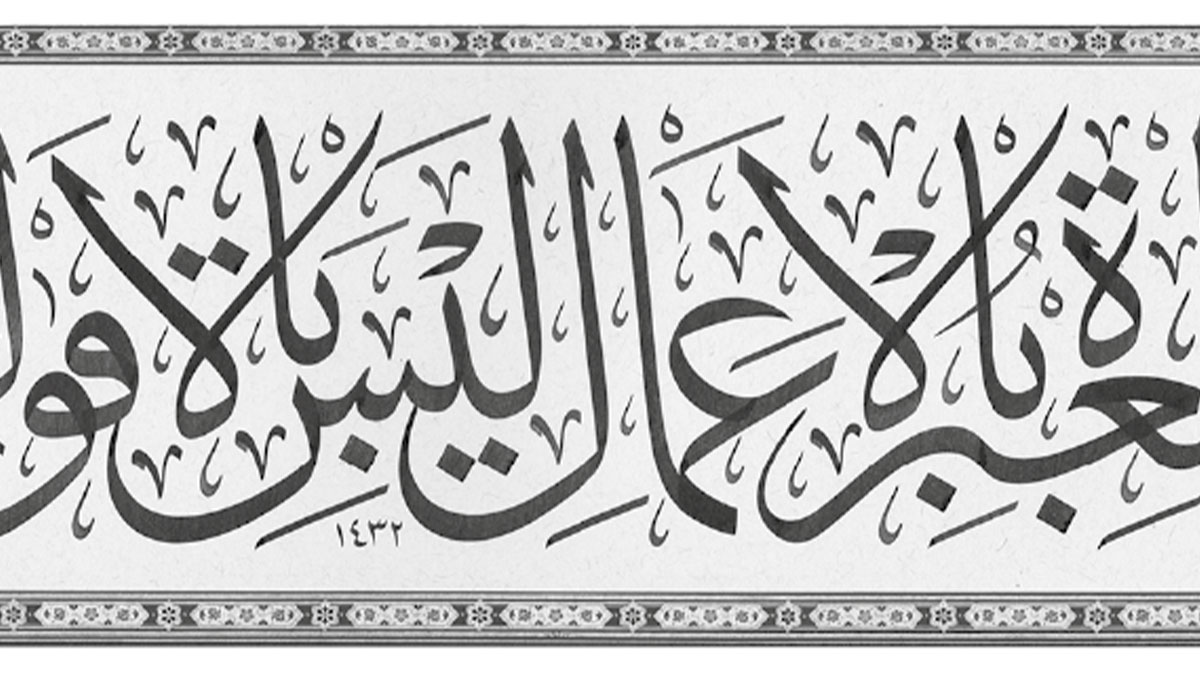 لعبرةُ بالاعمال ليس بالاقوا
١٤٣٢